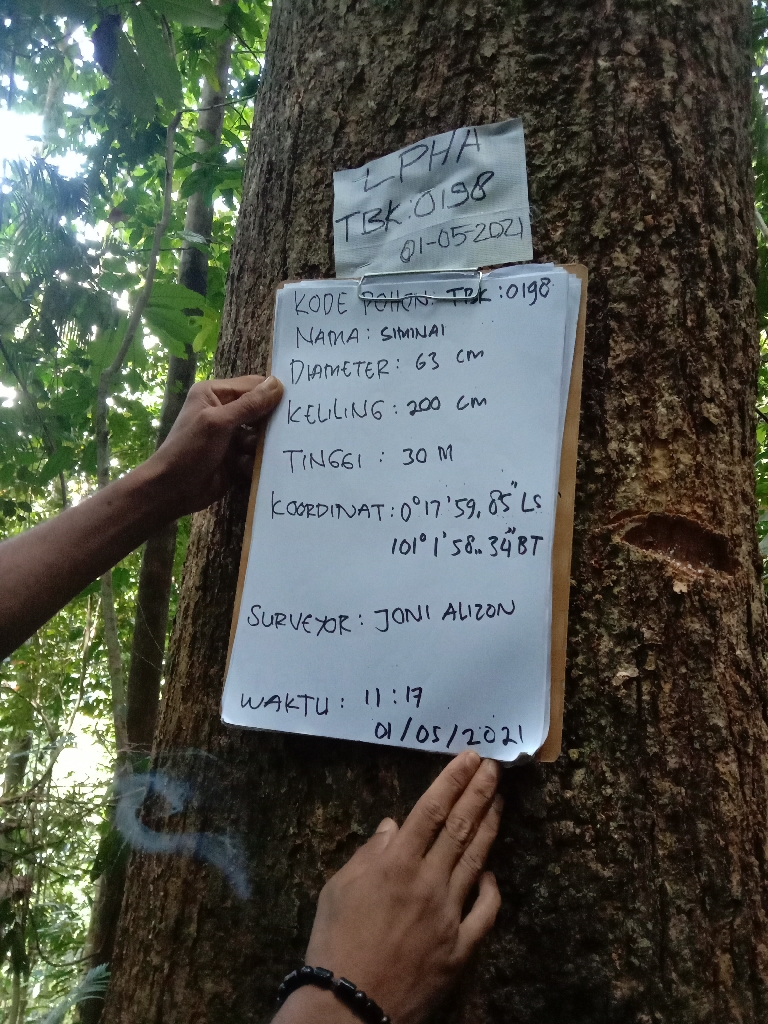 LPHA
TBK:0198
01-05-2021
KODE POHON: TBK:0198
NAMA: SIMINAI
DIAMETER: 63 CM
KELILING: 200 CM
TINGGI: 30 M
KOORDINAT: 0°17'59,85" LS
101°1'58..34" BT
SURVEYOR: JONI ALIZON
WAKTU: 11:17
01/05/2021